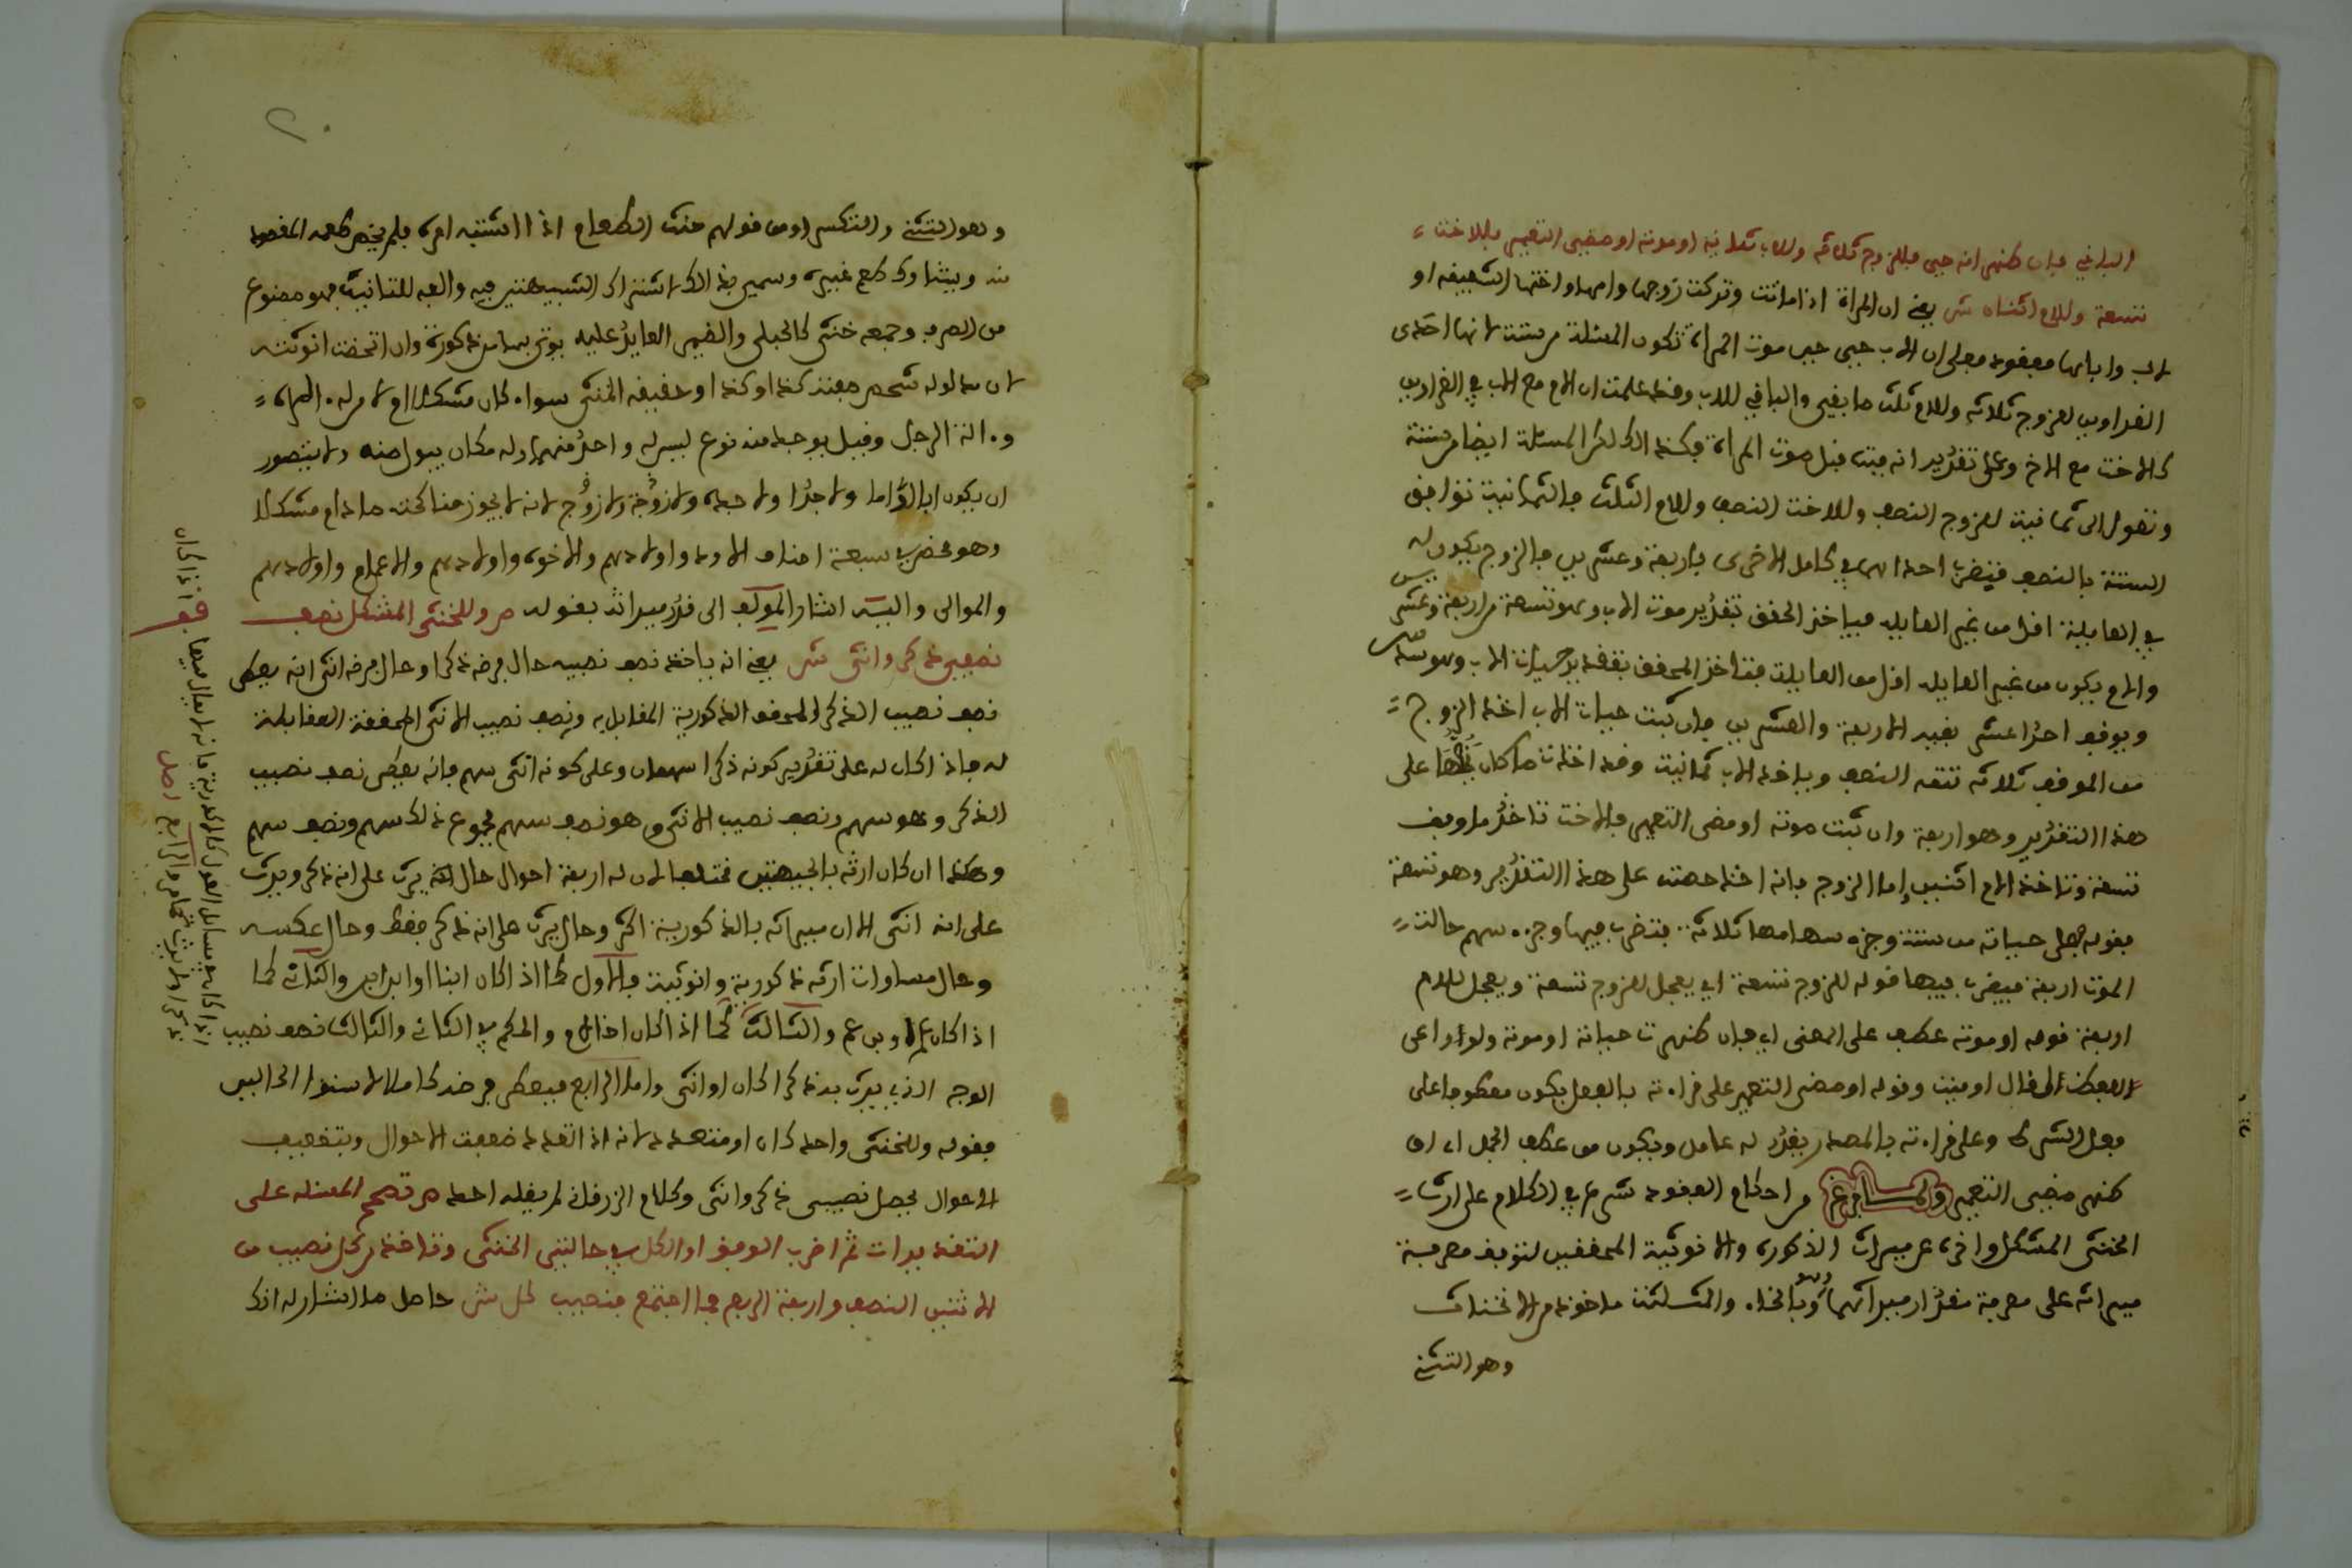 الباقي فان ظهر انه حي فللزوج ثلاثة وللاب ثمانية او موته او مضي التعمير فللاخت
تسعة وللام اثنان ش يعني ان المراة اذا ماتت وتركت زوجها وامها واختها الشقيقة او
لاب واباها مفقود فعلى ان الاب حي حين موت المراة تكون المسئلة من ستة لانها احدى
الغراوين للزوج ثلاثة وللام ثلث ما بقي والباقي للاب وقد علمت ان الام مع الاب في الغراوين
كالاخت مع الاخ وعلى تقدير انه ميت قبل موت المراة فكذلك المسئلة ايضا من ستة
وتعول الى ثمانية للزوج النصف وللاخت النصف وللام الثلث فالثمانية توافق
الستة بالنصف فيضرب احداهما في كامل الاخرى باربعة وعشرين فالزوج يكون له
في العايلة اقل من غير العايلة فياخذ المحقق بتقدير موت الاب وهو تسعة من اربعة وعشرين
والام يكون من غير العايلة اقل من العايلة فتاخذ المحقق بتقدير حيات الاب وهو
ويوقف احد عشر بقية الاربعة والعشرين فان ثبت حيات الاب اخذ الزوج
من الموقوف ثلاثة تتمة النصف وياخذ الاب ثمانية وقد اخذت ما كان على
هذا التقدير وهو اربعة وان ثبت موته او مضى التعمير فالاخت تاخذ مما وقف
تسعة وتاخذ الام اثنين اما الزوج فانه اخذ حصته على هذا التقدير وهو تسعة
فقوله فعلى حياته من ستة وجزء سهامها ثلاثة فتضرب فيها وجزء سهم حالة
الموت اربعة فيضرب فيها قوله للزوج تسعة اي يعجل للزوج تسعة ويعجل للام
اربعة قوله او موته عطف على المعنى اي فان ظهرت حياته او موته ولو راعى
اللفظ لقال او ميت وقوله او مضى التعمير على قراءته بالفعل يكون معطوفا على
فعل الشرط وعلى قراءته بالمصدر يقدر له عامل ويكون من عطف الجمل اي او
ظهر مضي التعمير ولما فرغ من احكام المفقود شرع في الكلام على ارث
الخنثى المشكل واخره عن ميراث الذكورة والانوثية المحققين لتوقف معرفة
ميراثه على معرفة مقدار ميراثهما وهو بالخاء والثاء المثلثة ماخوذ من الانخناث
وهو التثني
وهو التثني والتكسر او من قولهم خنث الطعام اذا اشتبه امره فلم يخلص طعمه المقصود
منه ويشارك طعم غيره وسمي بذلك لاشتراك الشبهين فيه والفه للتانيث فهو ممنوع
من الصرف وجمعه خناثى كالحبلى والضمير العايد عليه يوتى به مذكورا وان اتضحت انوثته
لان مدلوله شخص صفته كذا وكذا وحقيقة الخنثى سواء كان مشكلا ام لا من له الة المراة
والة الرجل وقيل يوجد منه نوع ليس له واحد منهما وله مكان يبول منه ولا يتصور
ان يكون ابا ولا اما ولا جدا ولا جدة ولا زوجة ولا زوج لانه لا يجوز مناكحته ما دام مشكلا
وهو منحصر في سبعة اصناف الاولاد واولادهم والاخوة واولادهم والاعمام واولادهم
والموالي واليه اشار المولف الى قدر ميراثه بقوله ص وللخنثى المشكل نصف
نصيبي ذكر وانثى ش يعني انه ياخذ نصف نصيبه حال فرضه ذكرا وحال فرضه انثى لا انه يعطى
نصف نصيب الذكر المحقق الذكورية المقابل له ونصف نصيب الانثى المحققة المقابلة
له فاذا كان له على تقدير كونه ذكرا سهمان وعلى كونه انثى سهم فانه يعطى نصف نصيب
الذكر وهو سهم ونصف نصيب الانثى وهو نصف سهم مجموع ذلك سهم ونصف سهم
وهكذا ان كان ارثه بالجهتين مختلفا لان له اربعة احوال حال يرث على انه ذكر ويرث
على انه انثى الا ان ميراثه بالذكورية اكثر وحال يرث على انه ذكر فقط وحال عكسه
وحال مساوات ارثه ذكورية وانوثية فالاول كما اذا كان ابنا او ابن ابن والثاني كما
اذا كان عما او بن عم والثالث كما اذا كان اخا لام والحكم في الثاني والثالث نصف نصيب
الوجه الذي يرث به ذكرا كان او انثى واما الرابع فيعطى فرضه كاملا لاستواء الحالين
فقوله وللخنثى واحدا كان او متعددا لانه اذا تعدد تضعفت الاحوال وبتضعيف
الاحوال يحصل نصيبي ذكر وانثى وكلام الزرقاني لم يقله احد ص تصحح المسئلة على
التقديرات ثم اضرب الوفق او الكل في حالتي الخنثى وتاخذ من كل نصيب من
الاثنين النصف واربعة الربع فما اجتمع فنصيب كل ش حاصل ما اشار له اذك